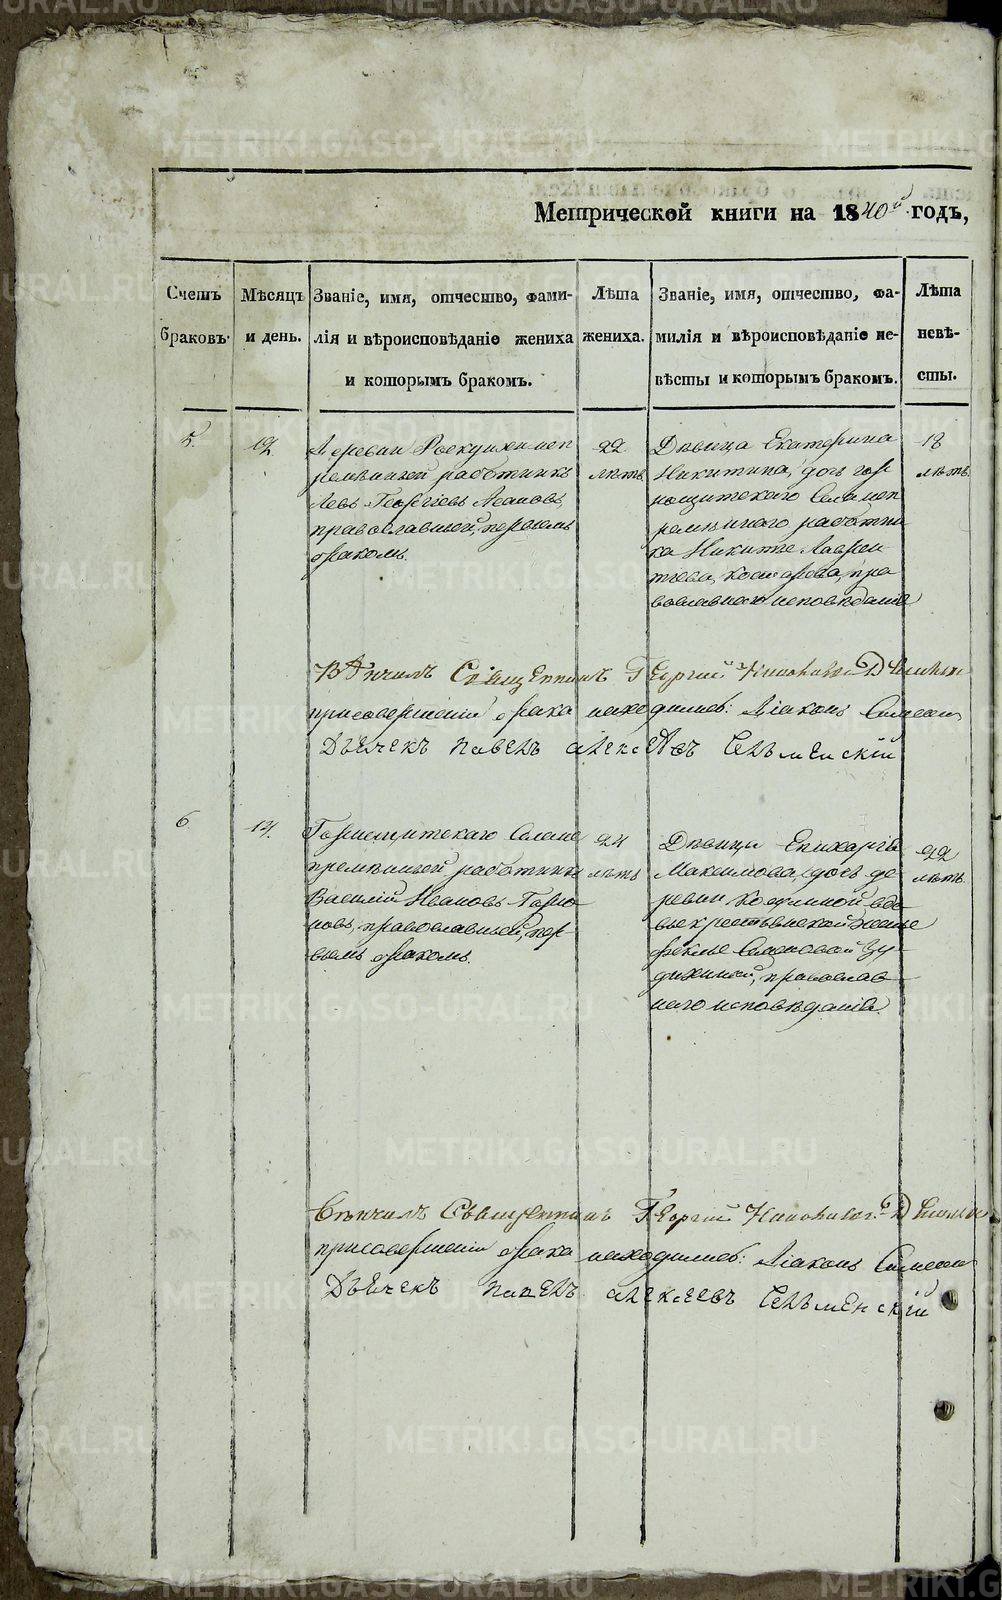 Метрической книги на 1840й годъ,
Счетъ браковъ.
Мѣсяцъ и день.
Званіе, имя, отчество, фами-
лія и вѣроисповѣданіе жениха
и которымъ бракомъ.
Лѣта
жениха.
Званіе, имя, отчество, фа-
милія и вѣроисповѣданіе не-
вѣсты и которымъ бракомъ.
Лѣта
невѣ-
сты.
5.
12.
Деревни неп
ремѣнной работникъ
Левъ Георгіевъ
православной, первымъ
бракомъ.
22
лѣтъ
Дѣвица Екатерина
Никитина, дочь гор
нощитскаго Села неп
ремѣннаго работни
ка Никиты Лаврен
тьева, пра
вославнаго исповѣданія
18
лѣтъ.
Вѣнчилъ Священникъ Георгий
присовершении брака находились: Діаконъ Симеонъ
Дьячекъ Павелъ алексеевъ Селъменскій
6
14.
Горнощитскаго Села не
премѣнной работникъ
Василій Ивановъ
православной, пер-
вымъ бракомъ.
24
лѣтъ
Дѣвица Епихарія
Максимова, дочь де
ревни Косулиной вдо
вы крестьянской жены
Феклы Семеновой
православ
наго исповѣданія.
22
лѣтъ.
Вѣнчилъ Священникъ Георгий
присовершении брака находились: Діаконъ Симеонъ
Дьячекъ Павелъ алексеевъ Селъменскій
METRIKI.GASO-URAL.RU